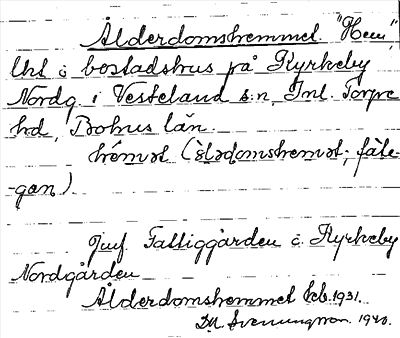 Ålderdomshemmet. "Hem"
lht i bostadshus på Kyrkeby
Nordg. i Vesteland s:n, Inl. Torpe
hd, Bohus län.
hémət (ålədomshemət; fàte-
-gan)
Jmf. Fattiggården i Kyrkeby
Nordgården
Ålderdomshemmet kb. 1931.
D.A. Svenningson. 1940.